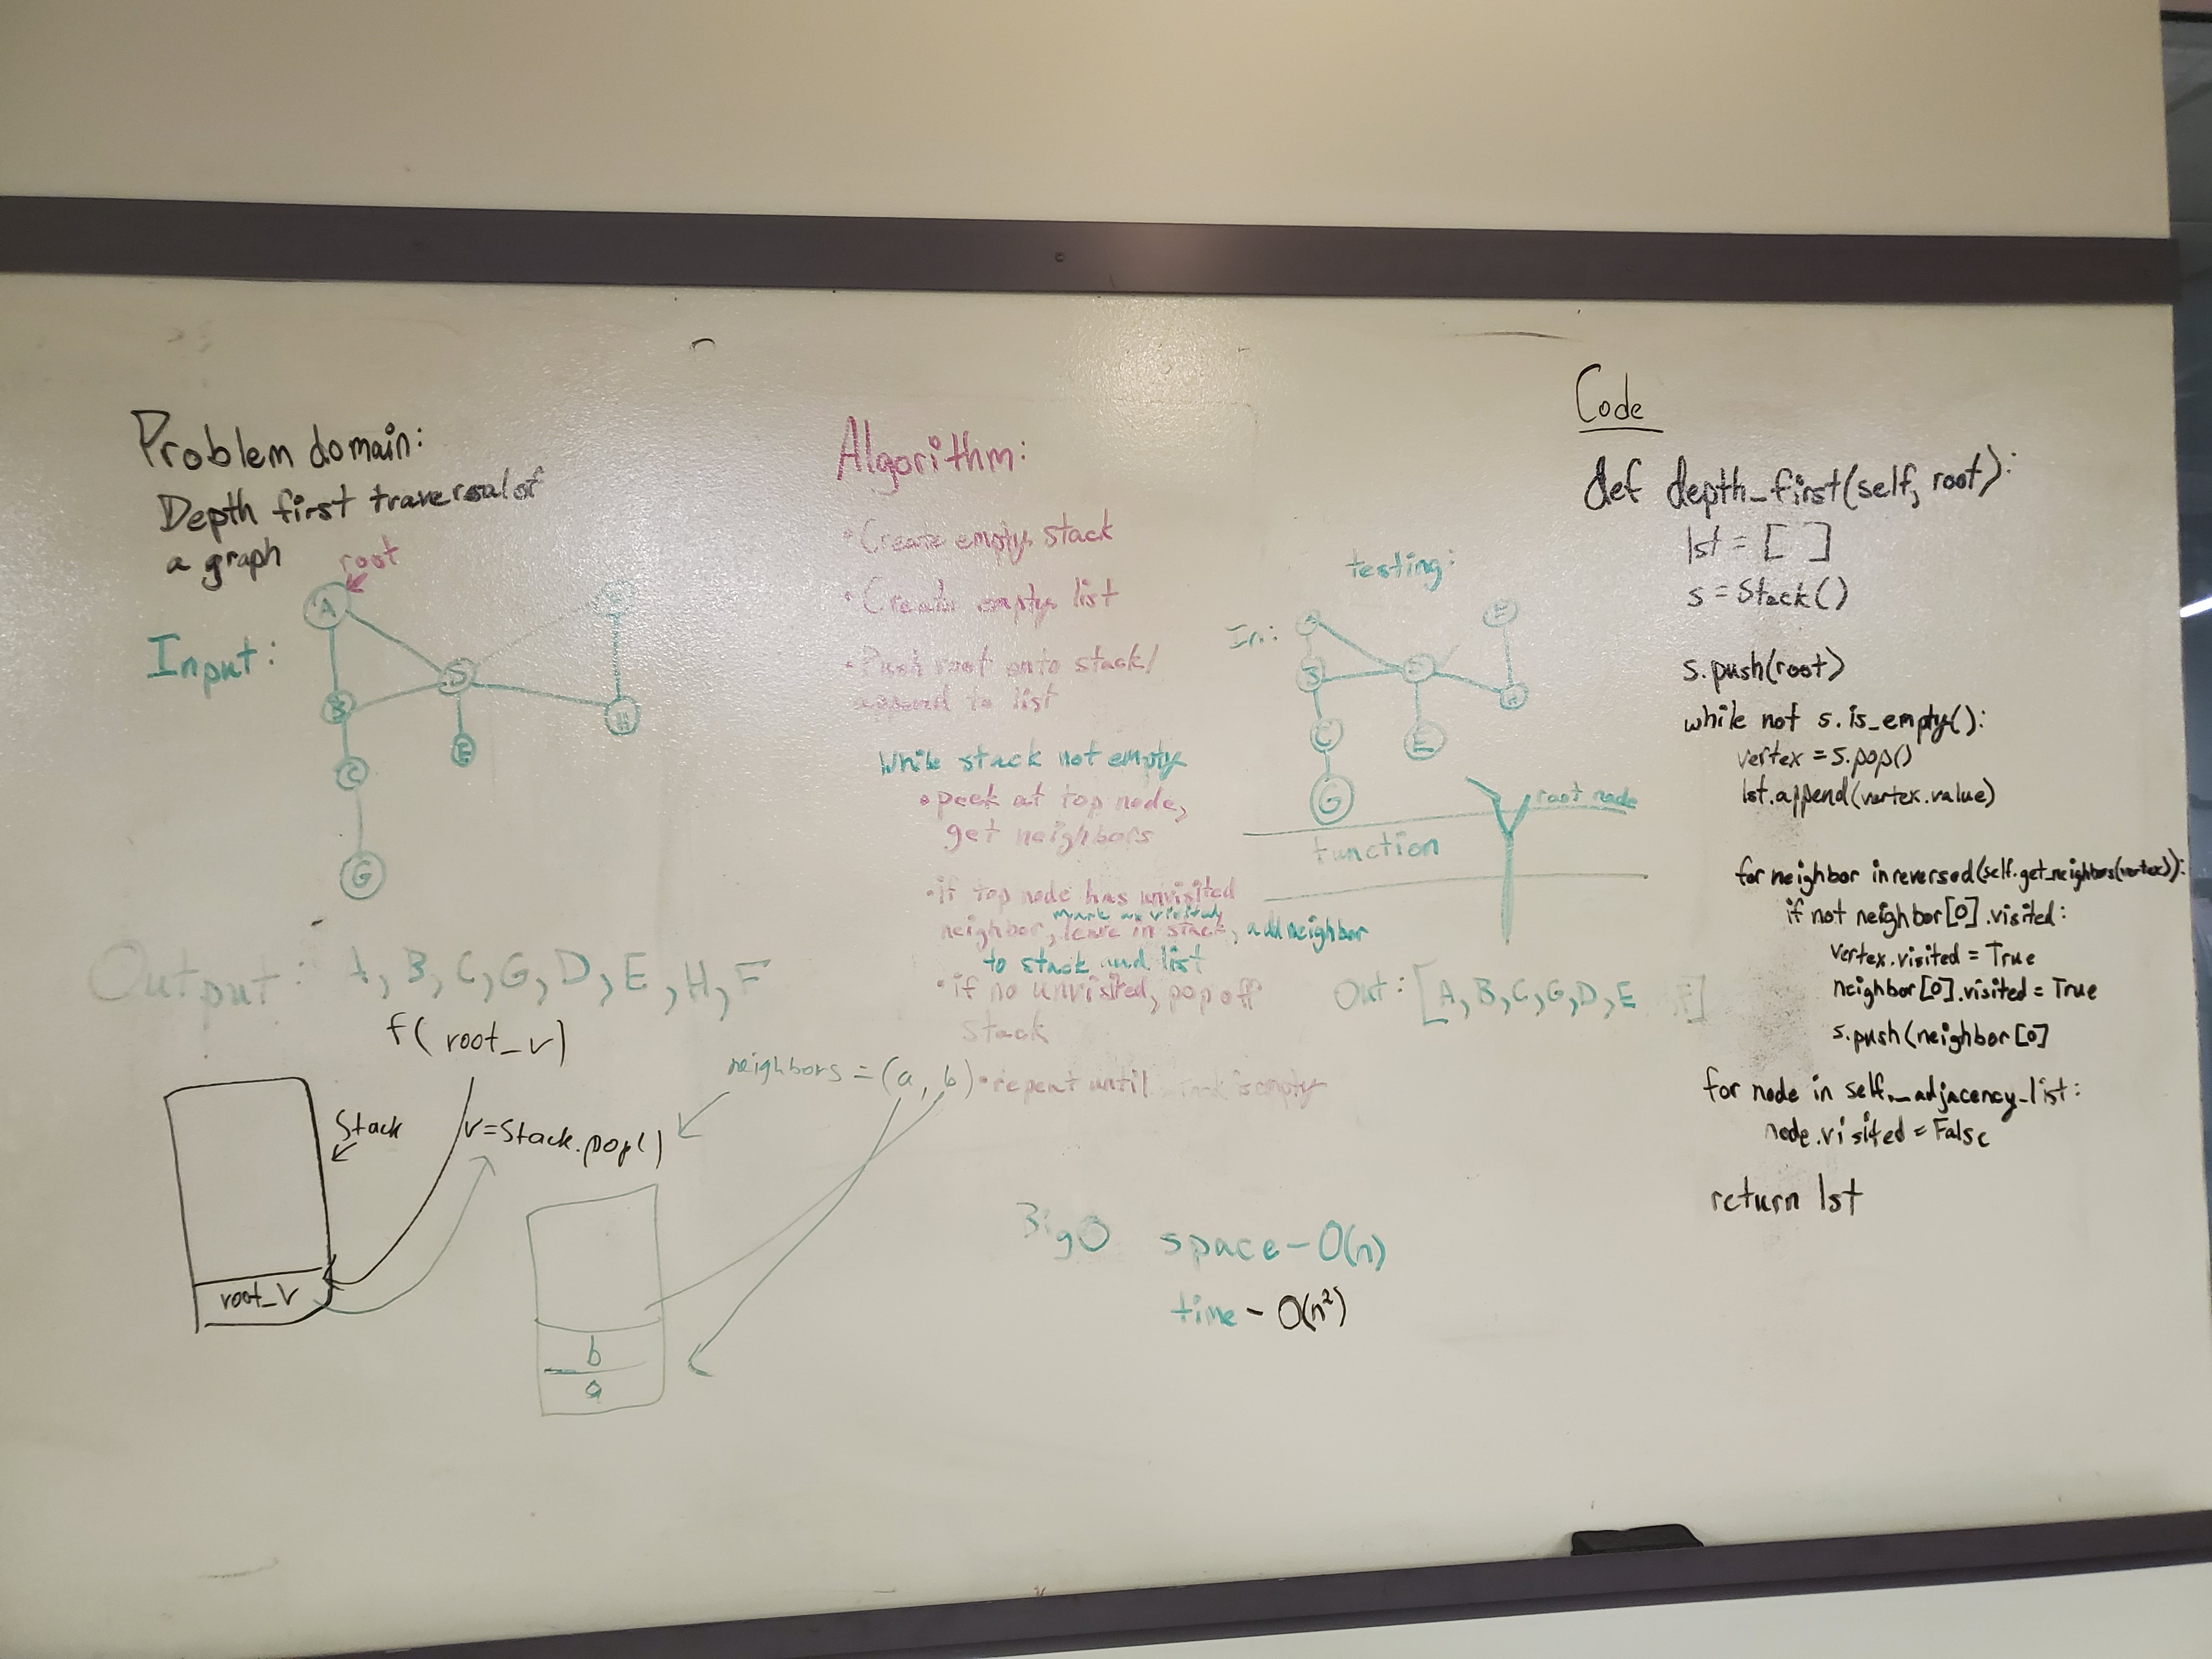 Problem domain:
Depth first traversal of
a graph
root
Input:
A
B
E
H
C
G
Output: A, B, C, G, D, E, H, F
f( root_v)
Stack
v=Stack.pop()
root_v
neighbors = (a, b)
b
a
Algorithm:
• Create empty stack
• Create empty list
• Push root onto stack/
append to list
While stack not empty
• peek at top node,
get neighbors
• if top node has unvisited
mark as visited,
neighbor, leave in stack, add neighbor
to stack and list
• if no unvisited, pop off
stack
• repeat until is empty
BigO space - O(n)
time - O(n²)
testing:
In:
C
E
H
G
root node
function
Out: [A, B, C, G, D, E ]
Code
def depth_first(self, root):
lst = [ ]
s = Stack()
s.push(root)
while not s.is_empty():
vertex = s.pop()
lst.append(vertex.value)
for neighbor in reversed(self.get_neighbors(vertex)):
if not neighbor[0].visited:
vertex.visited = True
neighbor[0].visited = True
s.push(neighbor[0]
for node in self._adjacency_list:
node.visited = False
return lst